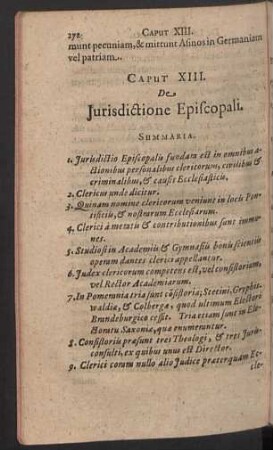 272 CAPUT XIII.
munt pecuniam, & mittunt Asinos in Germaniam
vel patriam.
CAPUT XIII.
De
Jurisdictione Episcopali.
SUMMARIA.
1. Jurisdictio Episcopalis fundata est in omnibus a-
ctionibus personalibus clericorum, civilibus &
criminalibus, & causis Ecclesiasticis.
2. Clericus unde dicitur.
3. Quinam nomine clericorum veniunt in locis Pon-
tificiis, & nostrarum Ecclesiarum.
4. Clerici à metatis & contributionibus sunt immu-
nes.
5. Studiosi in Academiis & Gymnasiis bonis scientiis
operam dantes clerici appellantur.
6. Judex clericorum competens est, vel consistorium,
vel Rector Academiarum.
7. In Pomerania tria sunt cõsistoria; Stetini, Gryphis-
waldiæ, & Colbergæ, quod ultimum Electori
Brandeburgico cessit. Tria etiam sunt in Ele-
ctoratu Saxoniæ, quæ enumerantur.
8. Consistoriis præsunt tres Theologi, & tres Juris-
consulti, ex quibus unus est Director.
9. Clerici coram nullo alio Judice præterquam Ec-
cle-